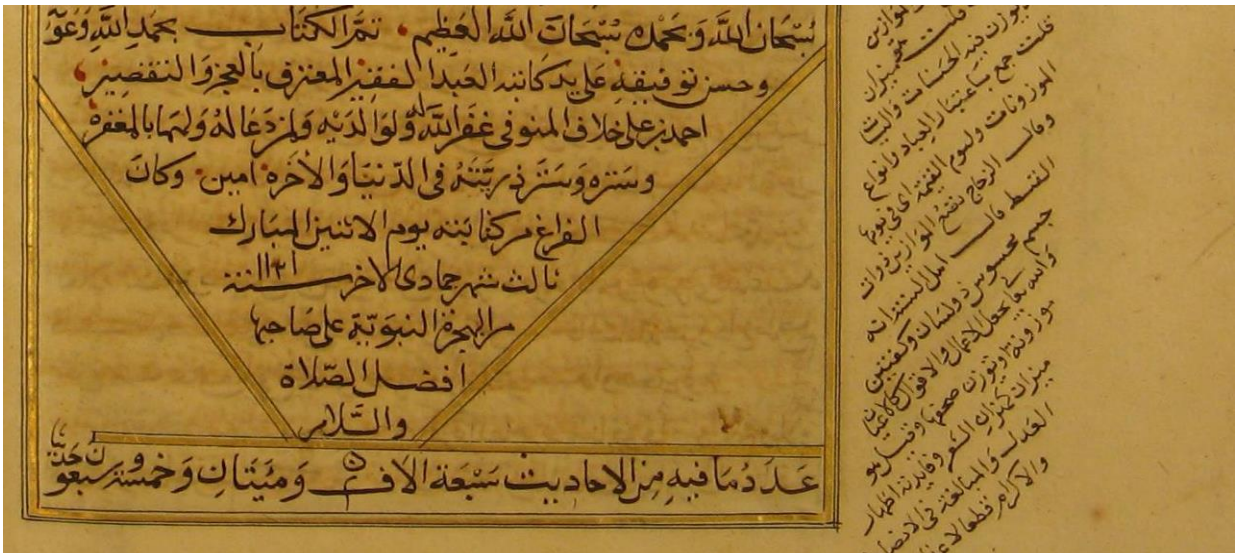 سُبْحَان اللَّه وَبحَمْدِه سُبْحَانَ اللَّه العَظِيم . تم الكتاب بحمد الله وعون
وحسن توفيقه على يد كاتبه العبد الفقير المعترف بالعجز والتقصير
احمد بن على خلاف المنوفى غفر الله له ولوالديه ولمن دعا له ولهما بالمغفره
وستره وستر ذريته فى الدنيا والاخره امين . وكان
الفراغ من كتابته يوم الاثنين المبارك
ثالث شهر جمادى الاخر سنة ١١٢١
من الهجرة النبوية على صاحبها
افضل الصلاة
والسلام
عَدَدُ مَا فِيهِ مِنَ الاحاديث سَبْعَة الاف وَمئيتَانِ وَخمسة وسبعون حديثا
يوزن فيه الحسنات والسيات
قلت جمع باعتبار العباد وانواع
الموزونات وليوم القيمة اى فى يوم
وقال الزجاج نضع الموازين ذوات
القسط قال اهل السنة انه
جسم محسوس ذو لسان وكفتين
والله تعالى جعل الاعمال والاقوال كالاعيان
موزونة او توزن صحفها وقيل هو
ميزان كميزان الشعر وفايدته اظهار
العدل والمبالغة فى الانصاف